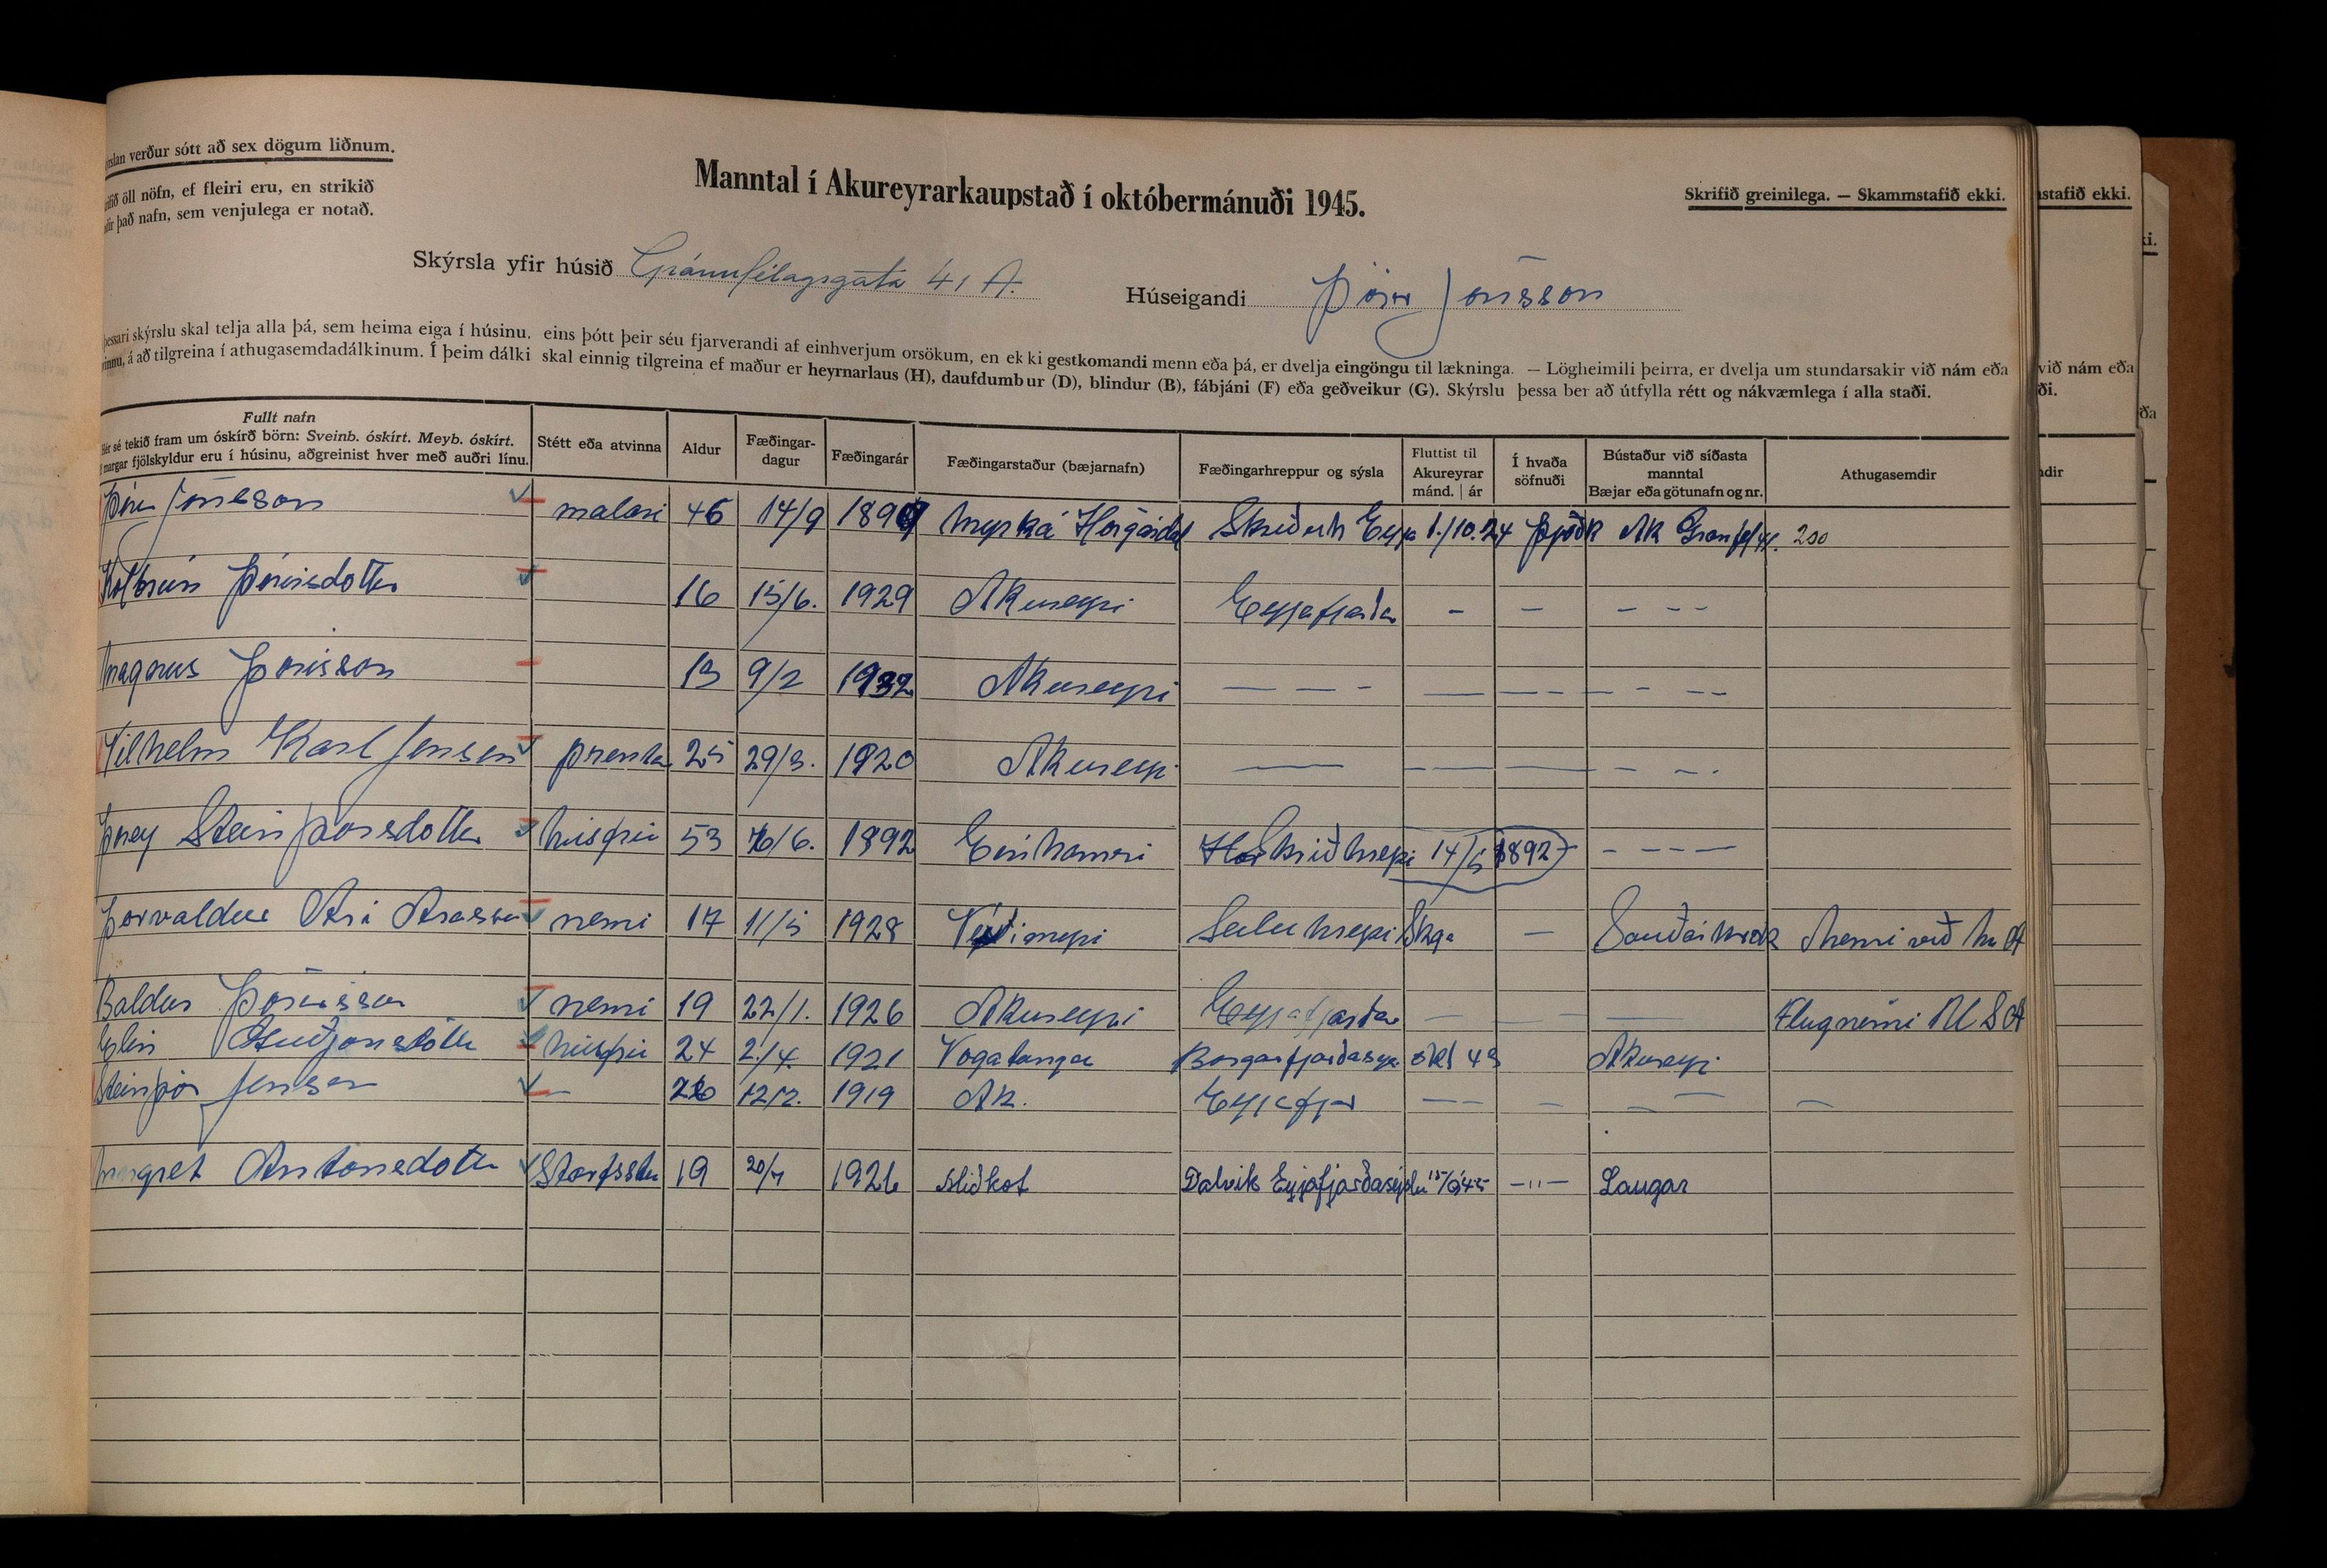 rslan verður sótt að sex dögum liðnum.
öll nöfn, ef fleiri eru, en strikið
það nafn, sem venjulega er notað.
Manntal í Akureyrarkaupstað í októbermánuði 1945.
Skrifið greinilega. — Skammstafið ekki.
Skýrsla yfir húsið Gránufélagsgata 41 A.
Húseigandi Þórir Jónsson
þessari skýrslu skal telja alla þá, sem heima eiga í húsinu, eins þótt þeir séu fjarverandi af einhverjum orsökum, en ekki gestkomandi menn eða þá, er dvelja eingöngu til lækninga. — Lögheimili þeirra, er dvelja um stundarsakir við nám eða
vinnu, á að tilgreina í athugasemdadálkinum. Í þeim dálki skal einnig tilgreina ef maður er heyrnarlaus (H), daufdumbur (D), blindur (B), fábjáni (F) eða geðveikur (G). Skýrslu þessa ber að útfylla rétt og nákvæmlega í alla staði.
Fullt nafn
Hér sé tekið fram um óskírð börn: Sveinb. óskírt. Meyb. óskírt.
margar fjölskyldur eru í húsinu, aðgreinist hver með auðri línu.
Stétt eða atvinna
Aldur
Fæðingar-
dagur
Fæðingarár
Fæðingarstaður (bæjarnafn)
Fæðingarhreppur og sýsla
Fluttist til
Akureyrar
mánd. | ár
Í hvaða
söfnuði
Bústaður við síðasta
manntal
Bæjar eða götunafn og nr.
Athugasemdir
Þórir Jónsson malari 46 14/9 1899 Myrká Hörgárdal Skriðuh Eyja 1./10.24 Þjóðk Ak Granfel 41. 200
Kolbrún Þórisdottir 16 15/6. 1929 Akureyri Eyjafjarða - - - - -
Magnus Þorisson 13 9/2 1932 Akureyri — — - — - - - - - - -
Vilhelm Karl Jensen prenta 25 29/3. 1920 Akureyri — — — — - - -
Þorey Steinþorsdottir húsfrú 53 6/6. 1892 Einhamri Skriðhrepi 14/5 1892 - - - —
Þorvaldur Ari Arason nemi 17 11/5 1928 Víðimýri Seiluhrepi Skga — Sauðárkrók Nemi við M A
Baldur Þórisson nemi 19 22/1. 1926 Akureyri Eyjafjarðar — — — Flugnemi U S A
Elín Guðjonsdóttir húsfrú 24 2./4. 1921 Vogatunga Borgarfjarðasys okt 43 Akureyri
Steinþór Jensen — 26 12/2. 1919 Ak. Eyjafjar — — — — — —
Margret Antonsdottir Starfsstu 19 20/7 1926 Miðkot Dalvík Eyjafjarðasýslu 15/9'45 —"— Laugar
stafið ekki.
við nám eða
ði.
dir
ki.
ða